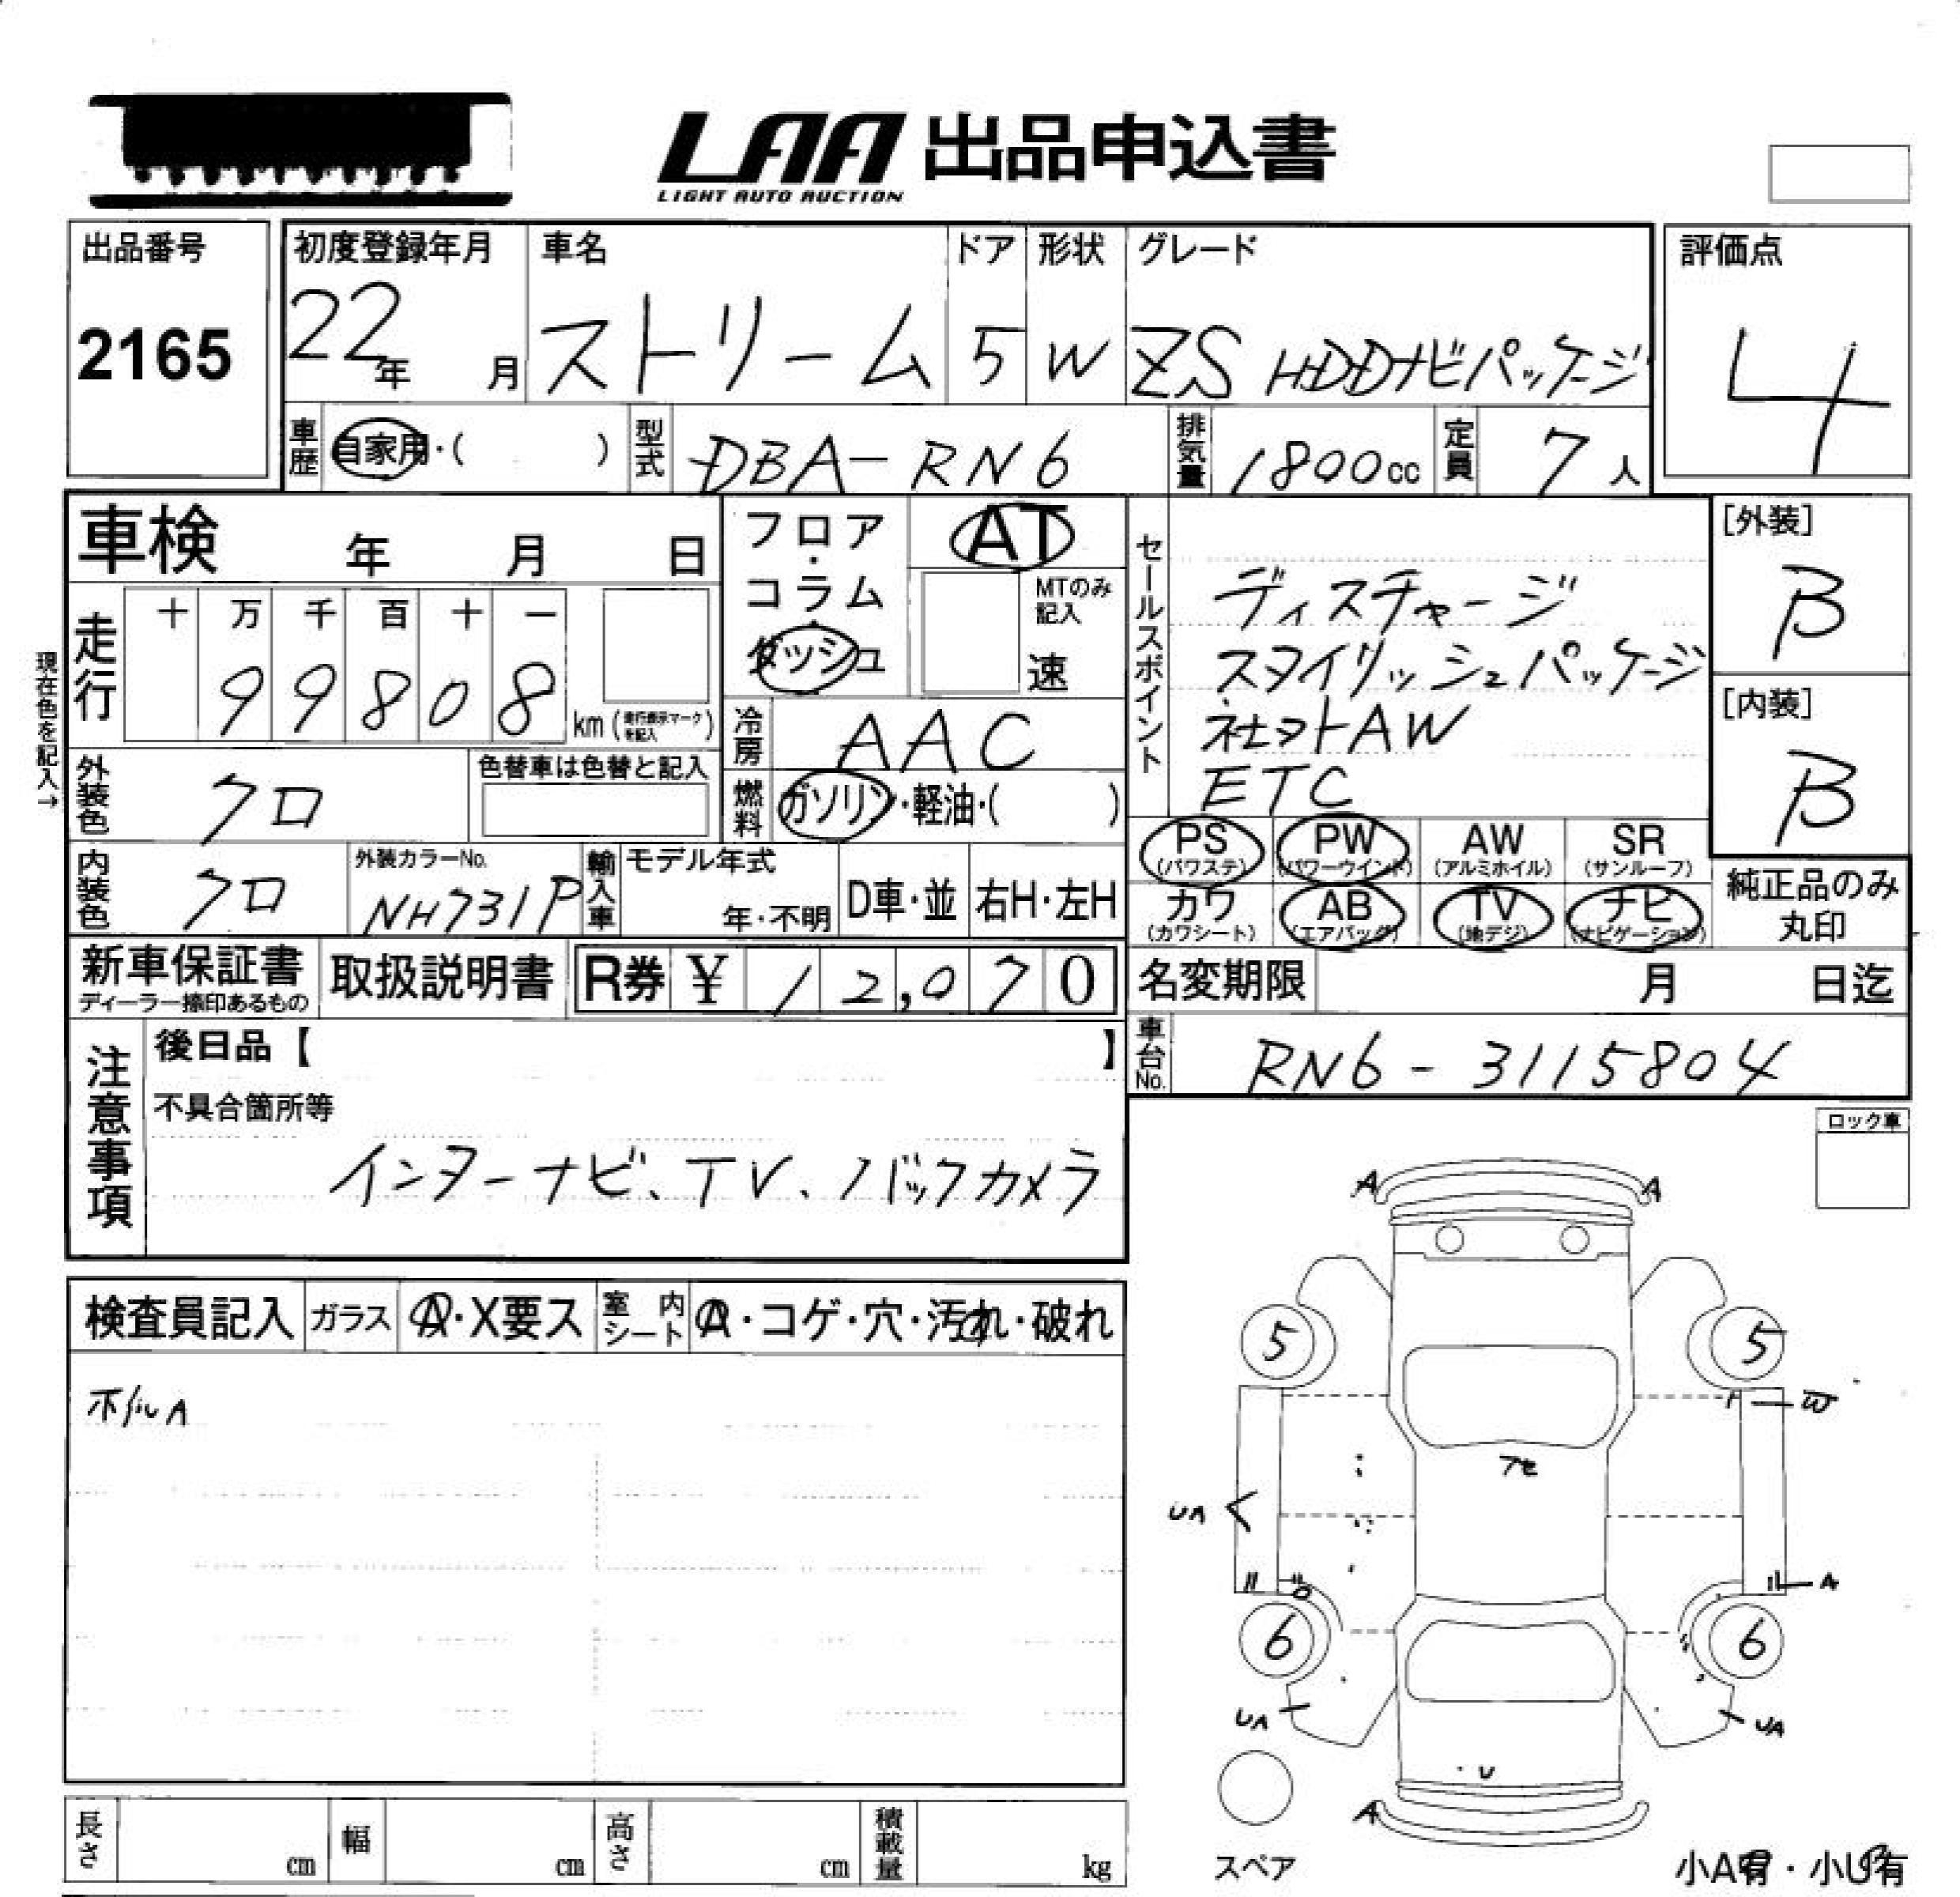 LAA 出品申込書
LIGHT AUTO AUCTION
出品番号
2165
初度登録年月
22年 月
車名
ストリーム
ドア
5
形状
W
グレード
ZS HDDナビパッケージ
評価点
4
車歴 自家用・( )
型式 DBA-RN6
排気量 1800cc
定員 7人
車検 年 月 日
現在色を記入→
走行
十 万 千 百 十 一
99808
km (走行表示マークを記入)
フロア・コラム
ダッシュ
AT
MTのみ記入
速
冷房 AAC
燃料 ガソリン・軽油・( )
外装色 クロ
色替車は色替と記入
内装色 クロ
外装カラーNo.
NH731P
輸入車
モデル年式
年・不明
D車・並
右H・左H
セールスポイント
ディスチャージ
スタイリッシュパッケージ
社外AW
ETC
[外装]
B
[内装]
B
PS (パワステ)
PW (パワーウインド)
AW (アルミホイル)
SR (サンルーフ)
カワ (カワシート)
AB (エアバッグ)
TV (地デジ)
ナビ (ナビゲーション)
純正品のみ丸印
新車保証書
ディーラー捺印あるもの
取扱説明書
R券 ¥ 12,070
名変期限 月 日迄
車台No. RN6-3115804
注意事項
後日品【 】
不具合箇所等
インターナビ、TV、バックカメラ
ロック車
検査員記入
ガラス A・X要ス
室内シート A・コゲ・穴・汚れ・破れ
ホイルA
A A
5 5
W
アセ
UA
A
6 6
UA UA
U
A
スペア
小A有・小U有
長さ cm
幅 cm
高さ cm
積載量 kg